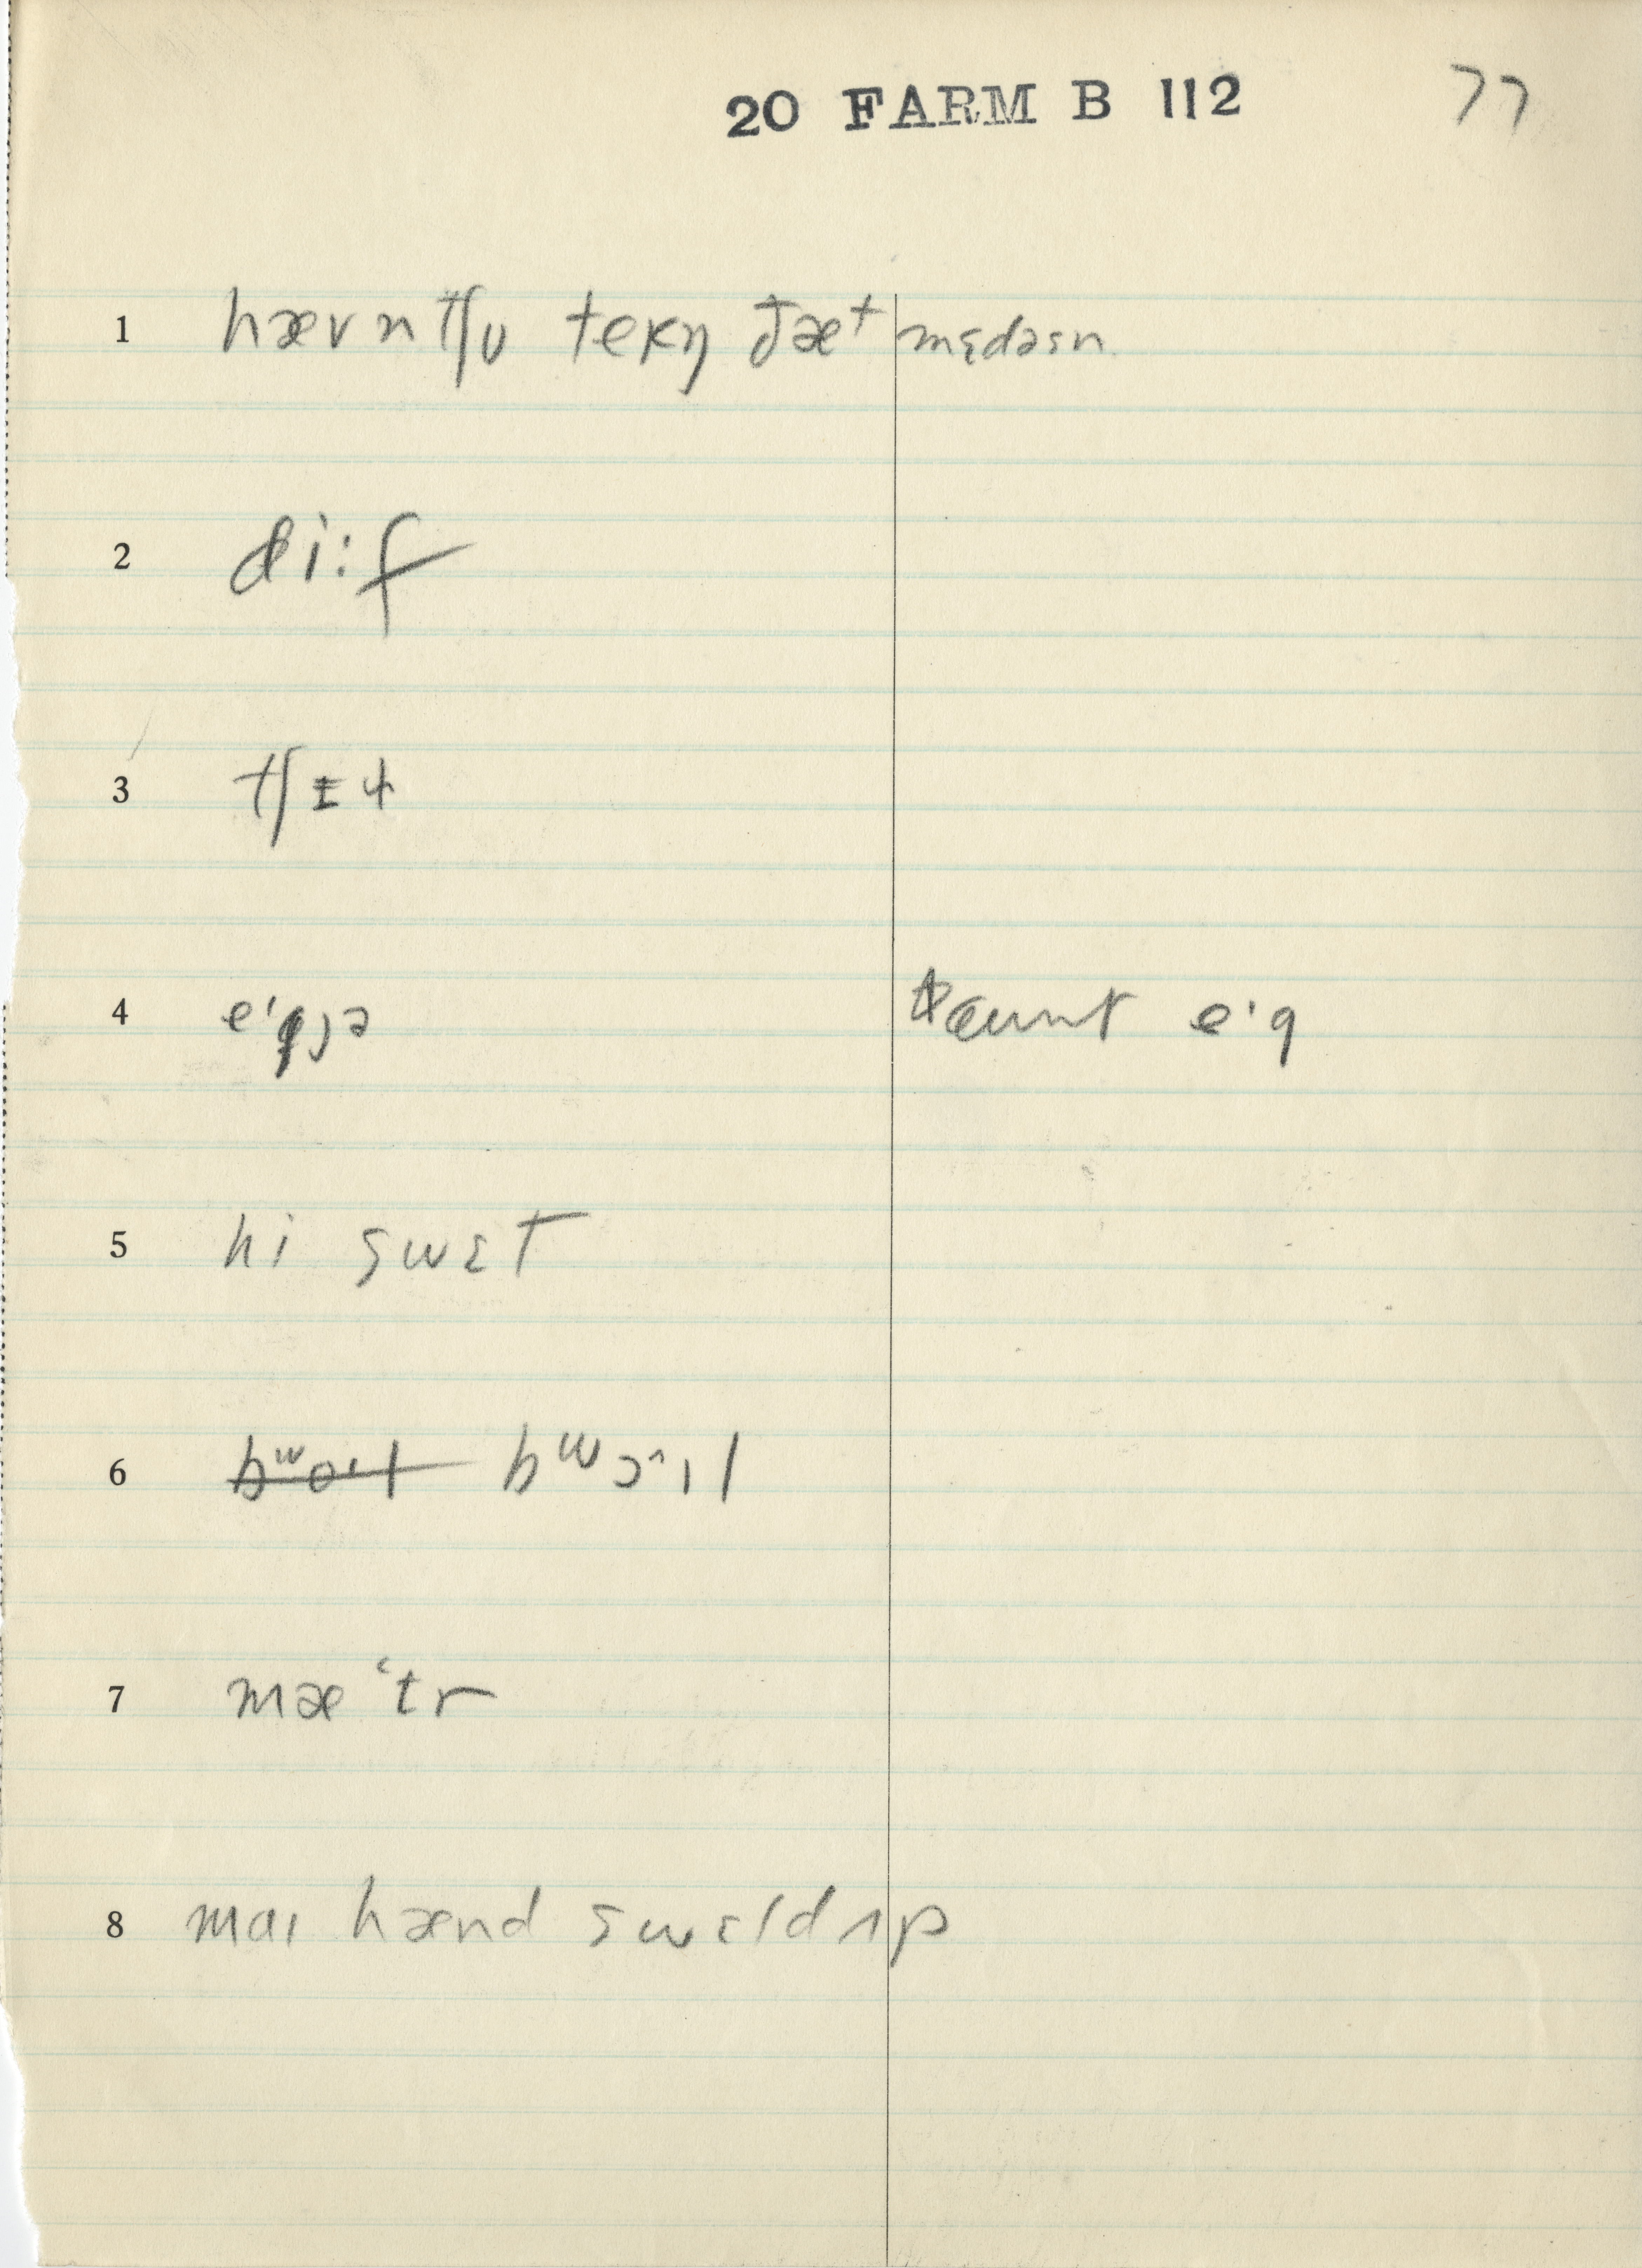 20 FARM B 112 77
1 hævn tʃu tekŋ ðæt mɛdəsn
2 di:f
3 tʃɪɫ
4 e'gjə eɪnt e'g
5 hi swɛT
6 bʷɔ'ɪl
7 mæ'tr
8 maɪ hænd swɛld ʌp